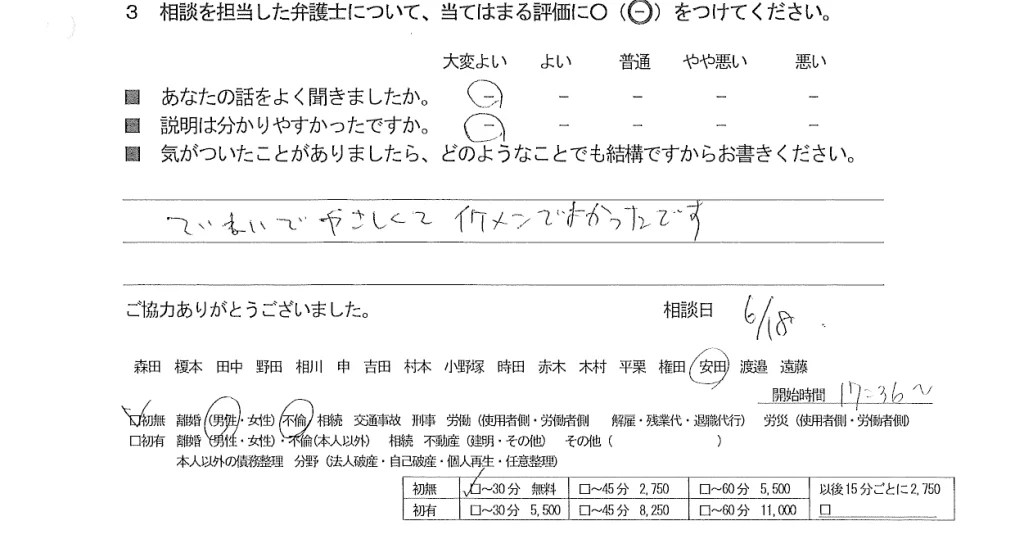 3 相談を担当した弁護士について、当てはまる評価に〇(㊀)をつけてください。
大変よい よい 普通 やや悪い 悪い
■ あなたの話をよく聞きましたか。 － － － － －
■ 説明は分かりやすかったですか。 － － － － －
■ 気がついたことがありましたら、どのようなことでも結構ですからお書きください。
ていねいで やさしくて イケメンでよかったです
ご協力ありがとうございました。 相談日 6/18
森田 榎本 田中 野田 相川 申 吉田 村本 小野塚 時田 赤木 木村 平栗 権田 安田 渡邉 遠藤
開始時間 17:36~
☑初無 離婚(男性・女性) 不倫 相続 交通事故 刑事 労働(使用者側・労働者側 解雇・残業代・退職代行) 労災(使用者側・労働者側)
□初有 離婚(男性・女性)・不倫(本人以外) 相続 不動産(建明・その他) その他( )
本人以外の債務整理 分野(法人破産・自己破産・個人再生・任意整理)
初無 ☑～30分 無料 □～45分 2,750 □～60分 5,500 以後15分ごとに2,750
初有 □～30分 5,500 □～45分 8,250 □～60分 11,000 □